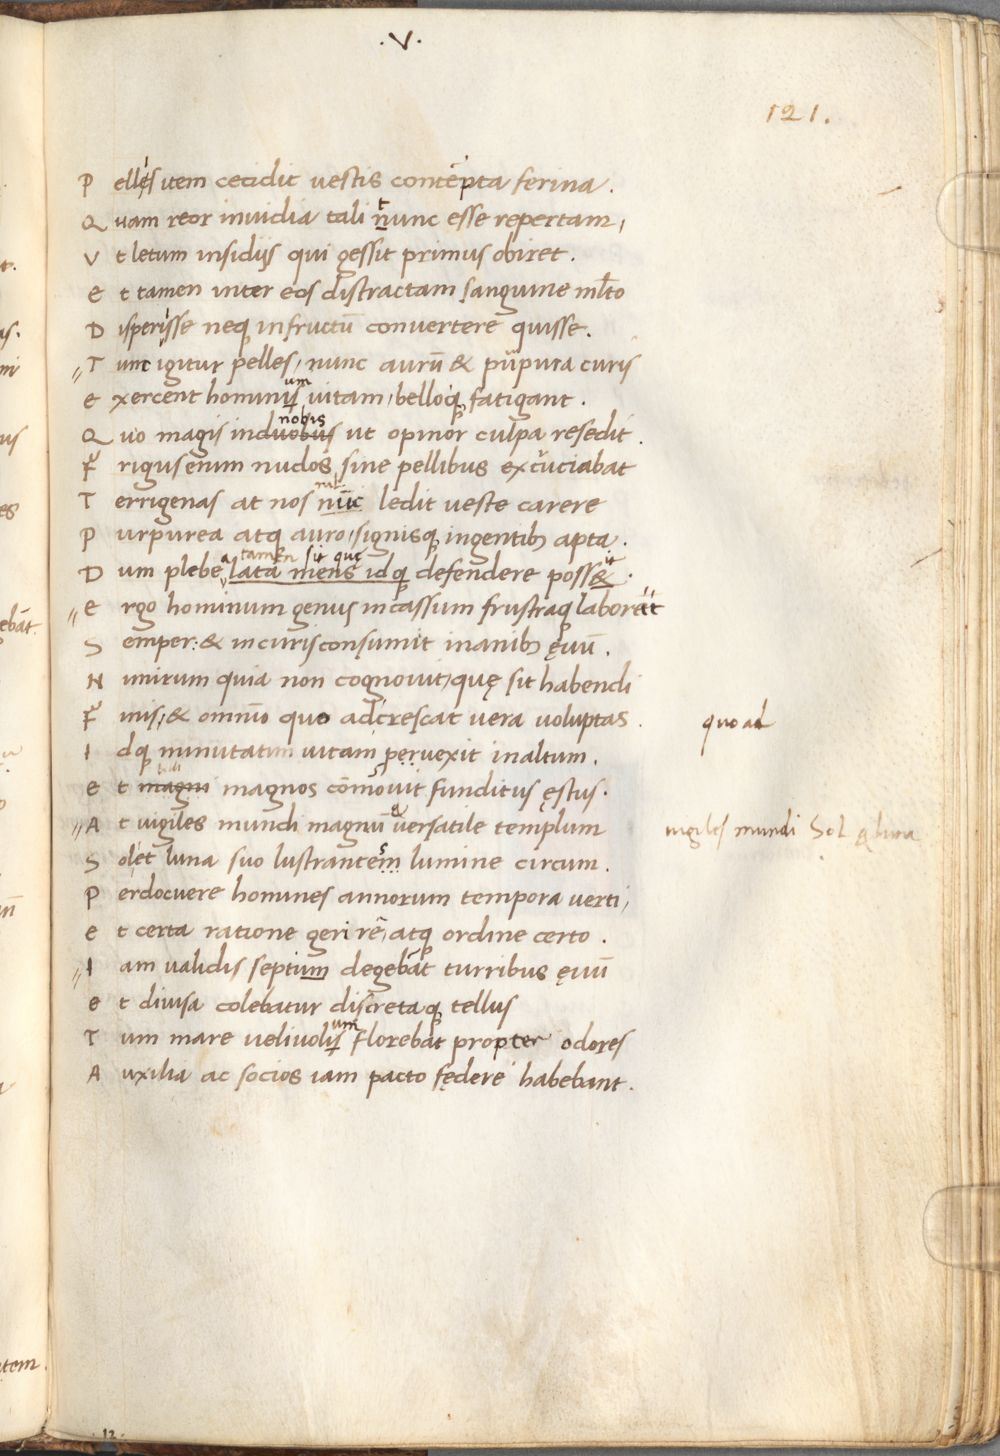 .V.
121.
P ellęs item cecidit uestis contēpta ferina.
Q uam reor inuidia tali nunc esse repertam,
V t letum insidijs qui gessit primus obiret.
e t tamen inter eos distractam sanguine ml̄to
D isperisse neq; infructū conuertere quisse.
T unc igitur pelles, nunc aurū & pupura curis
um
e xercent hominis uitam, belloq; fatigant.
nobis
Q uo magis induobus ut opinor culpa resedit.
F rigus enim nudos sine pellibus excruciabat
T errigenas at nos nūc ledit ueste carere
P urpurea atq auro, signisq; ingentib; apta.
a tamen sit que it
D um plebe lata mens idq; defendere poss&.
e rgo hominum genus incassum frustraq; laborat
S emper: & incuris consumit inanib; ęuū.
N imirum quia non cognouit, quę sit habendi
F inis, & omnīo quo adcrescat uera uoluptas.
quoad
I dq; minutatim uitam peruexit inaltum.
e t magni magnos cōmouit funditus ęstus.
&
A t uigiles mundi magnū uersatile templum
uigiles mundi Sol & luna
S olet luna suo lustrantem lumine circum.
P erdocuere homines annorum tempora uerti,
e t certa ratione geri rē, atq; ordine certo.
I am ualidis septium degebāt turribus ęuū
e t diuisa colebatur discretaq; tellus
um
T um mare ueliuolis florebat propter odores
A uxilia ac socios iam pacto fędere habebant.
12